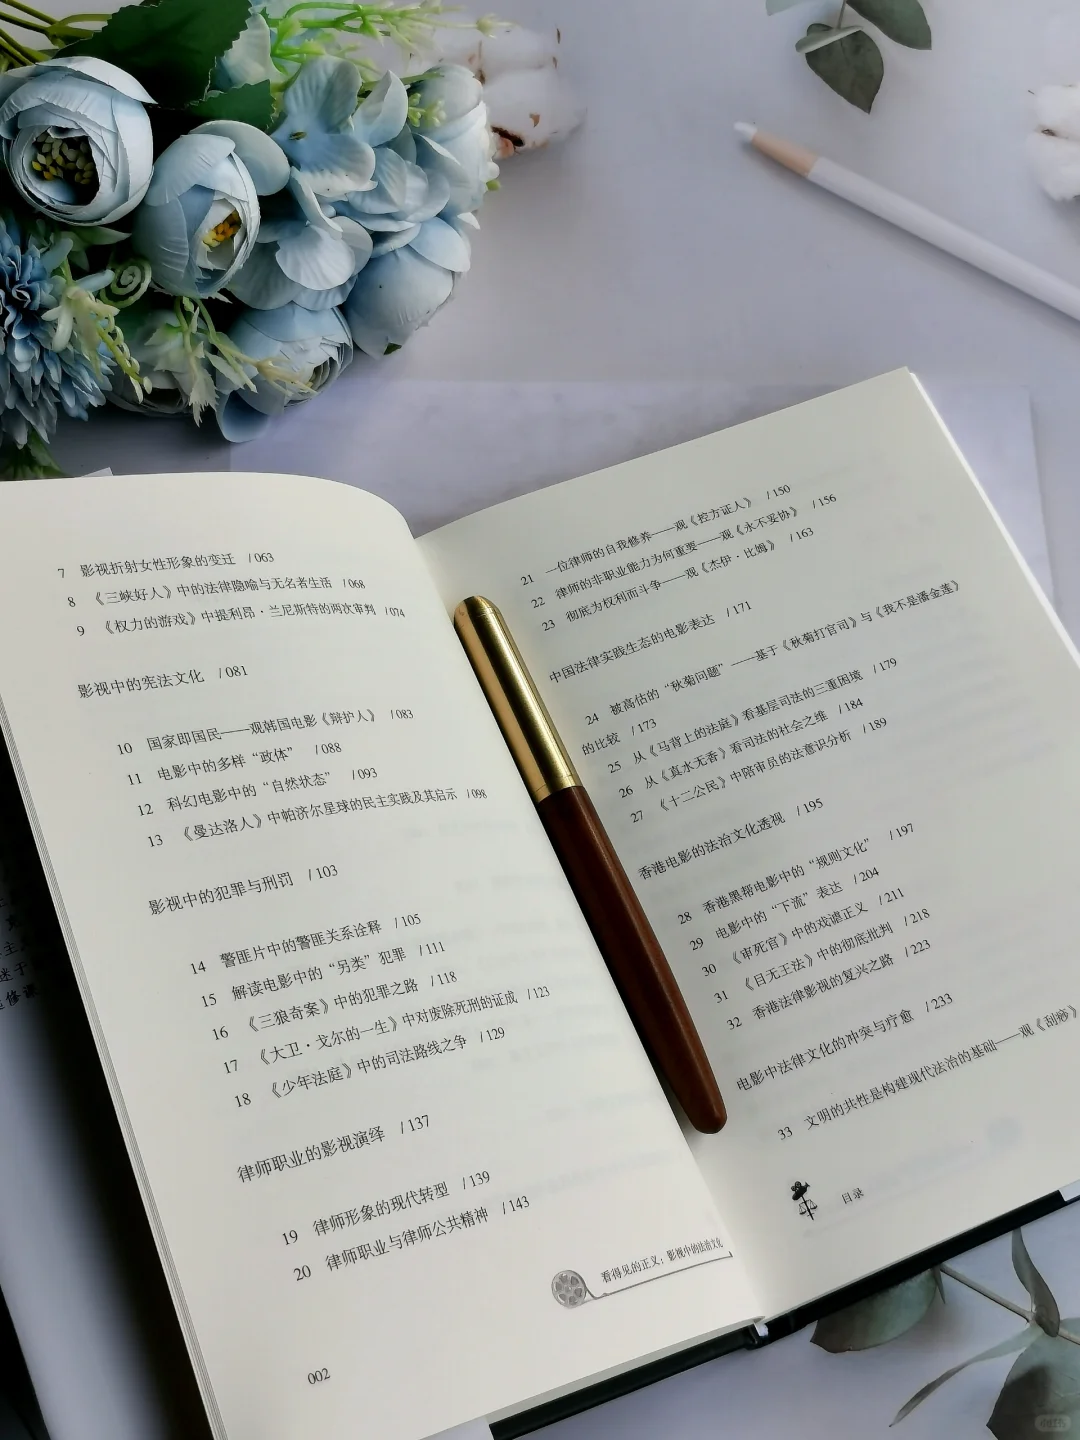 7 影视折射女性形象的变迁 / 063
8 《三峡好人》中的法律隐喻与无名者生活 / 068
9 《权力的游戏》中提利昂·兰尼斯特的两次审判 / 074
影视中的宪法文化 / 081
10 国家即国民——观韩国电影《辩护人》 / 083
11 电影中的多样“政体” / 088
12 科幻电影中的“自然状态” / 093
13 《曼达洛人》中帕济尔星球的民主实践及其启示 / 098
影视中的犯罪与刑罚 / 103
14 警匪片中的警匪关系诠释 / 105
15 解读电影中的“另类”犯罪 / 111
16 《三狼奇案》中的犯罪之路 / 118
17 《大卫·戈尔的一生》中对废除死刑的证成 / 123
18 《少年法庭》中的司法路线之争 / 129
律师职业的影视演绎 / 137
19 律师形象的现代转型 / 139
20 律师职业与律师公共精神 / 143
看得见的正义：影视中的法治文化
002
21 一位律师的自我修养——观《控方证人》 / 150
22 律师的非职业能力为何重要——观《永不妥协》 / 156
23 彻底为权利而斗争——观《杰伊·比姆》 / 163
中国法律实践生态的电影表达 / 171
24 被高估的“秋菊问题”——基于《秋菊打官司》与《我不是潘金莲》
的比较 / 173
25 从《马背上的法庭》看基层司法的三重困境 / 179
26 从《真水无香》看司法的社会之维 / 184
27 《十二公民》中陪审员的法意识分析 / 189
香港电影的法治文化透视 / 195
28 香港黑帮电影中的“规则文化” / 197
29 电影中的“下流”表达 / 204
30 《审死官》中的戏谑正义 / 211
31 《目无王法》中的彻底批判 / 218
32 香港法律影视的复兴之路 / 223
电影中法律文化的冲突与疗愈 / 233
33 文明的共性是构建现代法治的基础——观《刮痧》
目录